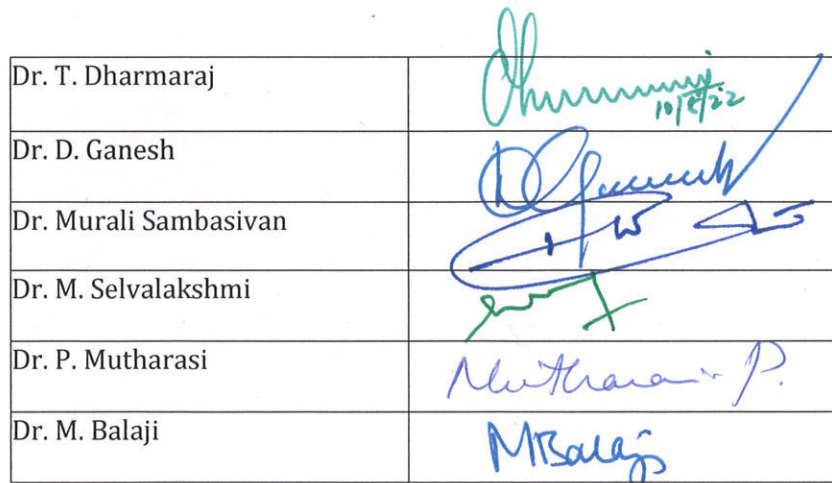 Dr. T. Dharmaraj
10/8/22
Dr. D. Ganesh
Dr. Murali Sambasivan
Dr. M. Selvalakshmi
Dr. P. Mutharasi
Mutharasi P.
Dr. M. Balaji
MBalaji